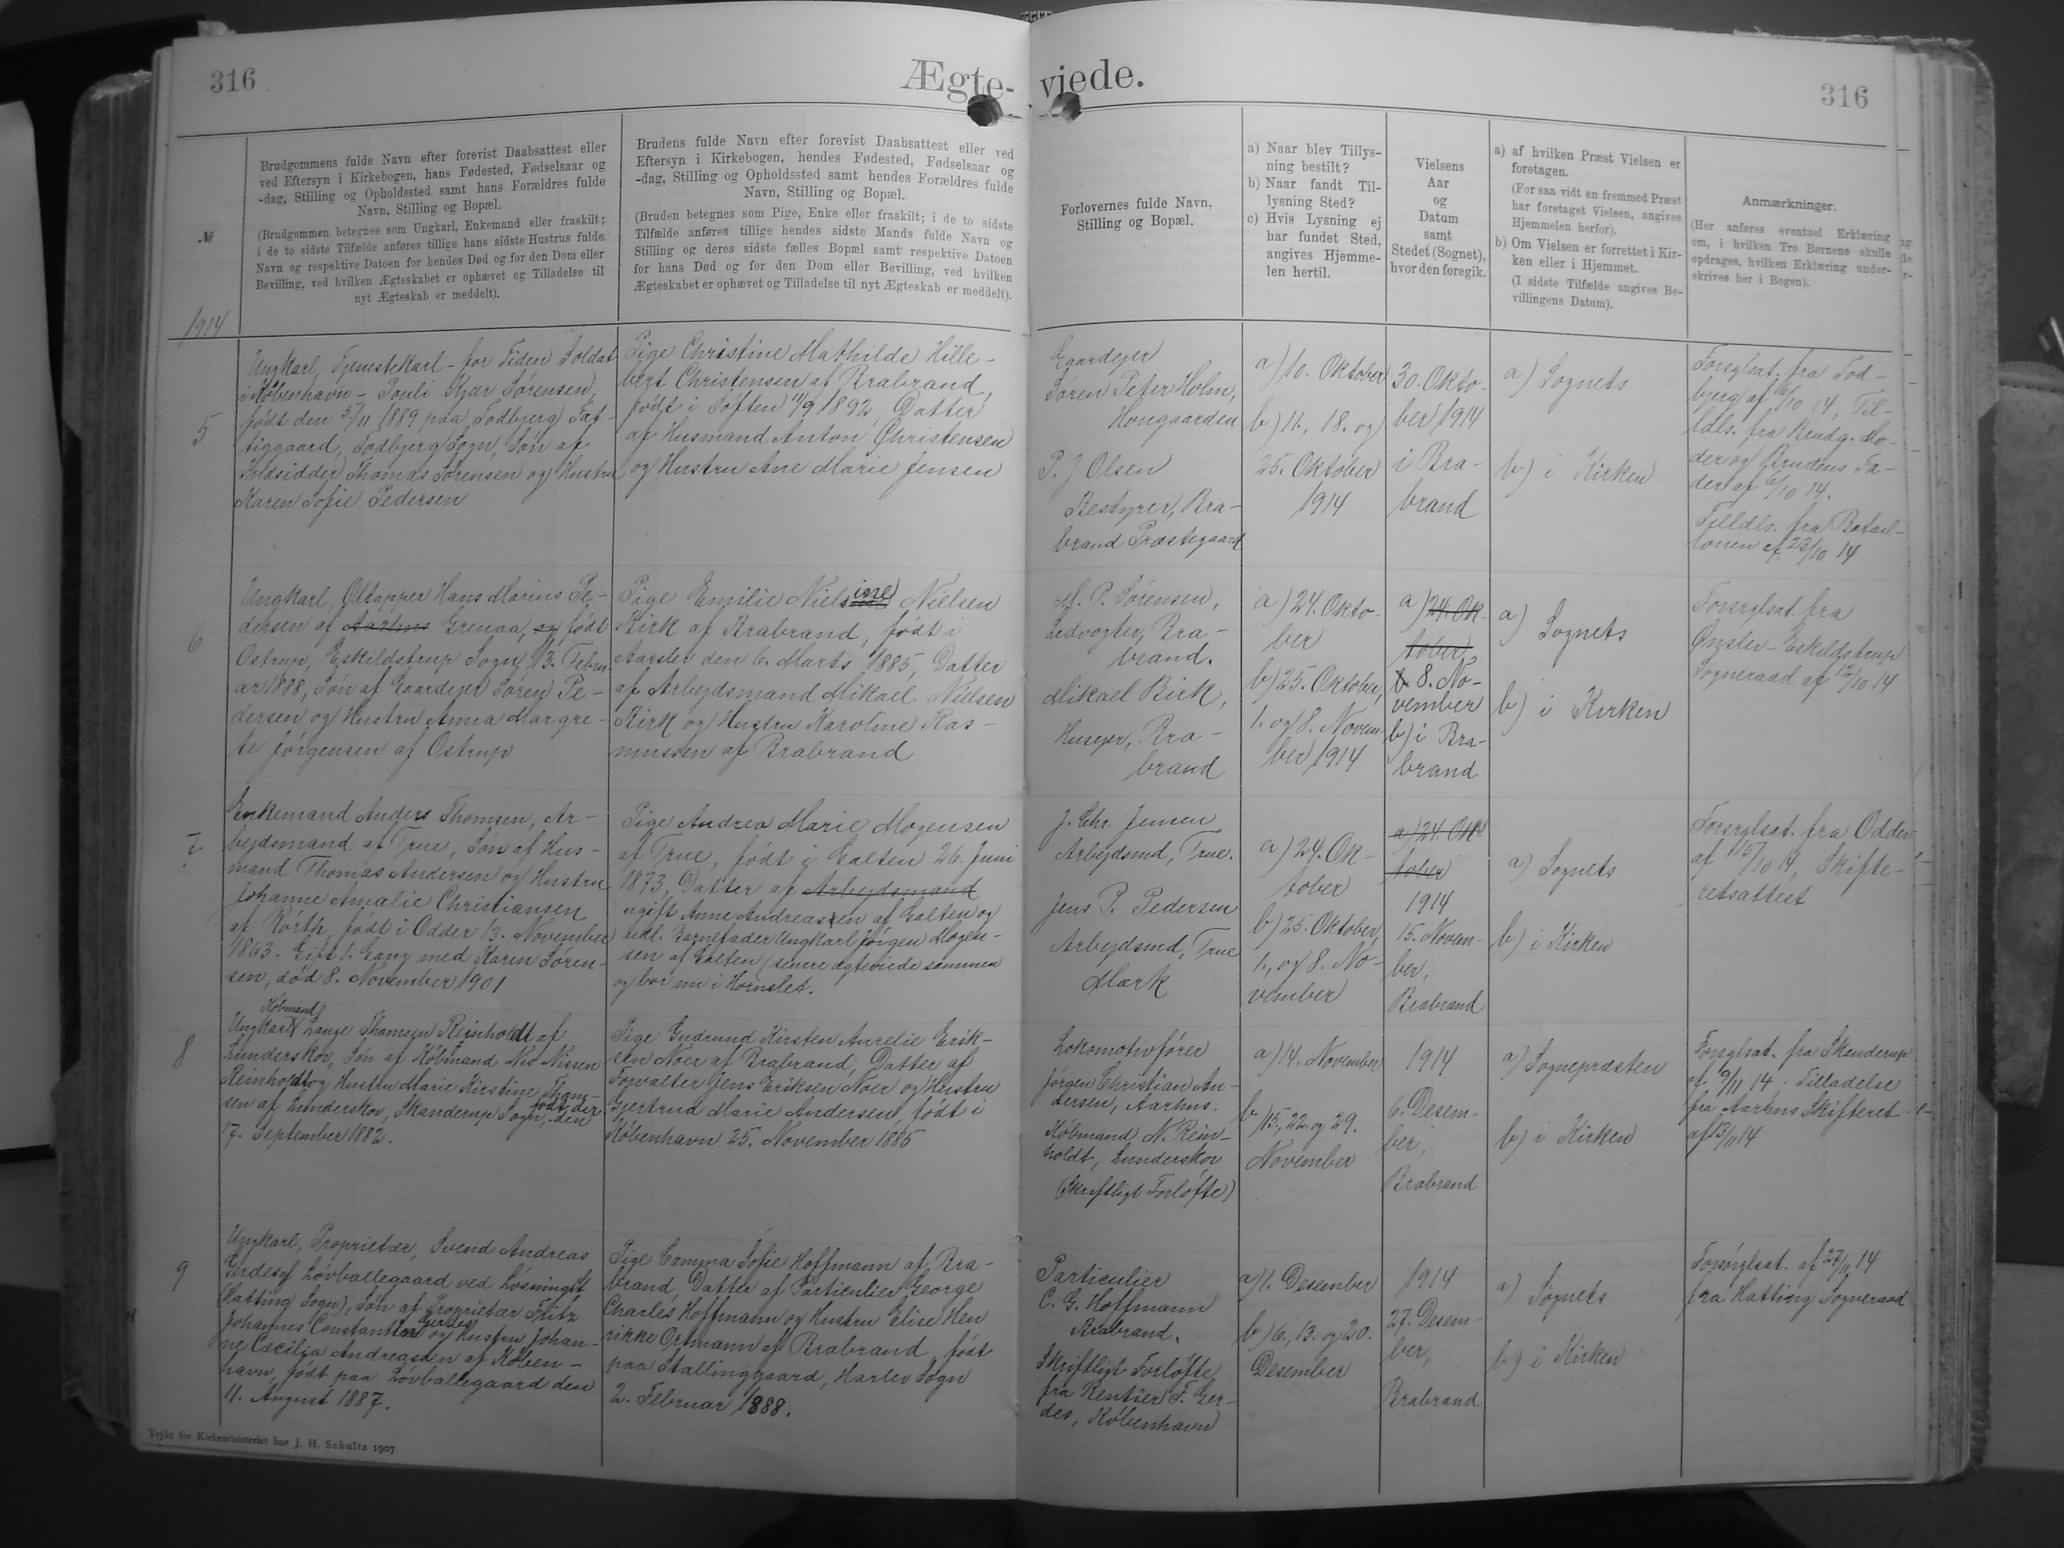 316
Ægte-
vjede.
316
№
Brudgommens fulde Navn efter forevist Daabsattest eller
ved Eftersyn i Kirkebogen, hans Fødested, Fødselsaar og
-dag, Stilling og Opholdssted samt hans Forældres fulde
Navn, Stilling og Bopæl.
(Brudgommen betegnes som Ungkarl, Enkemand eller fraskilt;
i de to sidste Tilfælde anføres tillige hans sidste Hustrus fulde
Navn og respektive Datoen for hendes Død og for den Dom eller
Bevilling, ved hvilken Ægteskabet er ophævet og Tilladelse til
nyt Ægteskab er meddelt).
Brudens fulde Navn efter forevist Daabsattest eller ved
Eftersyn i Kirkebogen, hendes Fødested, Fødselsaar og
-dag, Stilling og Opholdssted samt hendes Forældres fulde
Navn, Stilling og Bopæl.
(Bruden betegnes som Pige, Enke eller fraskilt; i de to sidste
Tilfælde anføres tillige hendes sidste Mands fulde Navn og
Stilling og deres sidste fælles Bopæl samt respektive Datoen
for hans Død og for den Dom eller Bevilling, ved hvilken
Ægteskabet er ophævet og Tilladelse til nyt Ægteskab er meddelt).
Forlovernes fulde Navn,
Stilling og Bopæl.
a) Naar blev Tillys-
ning bestilt?
b) Naar fandt Til-
lysning Sted?
c) Hvis Lysning ej
har fundet Sted,
angives Hjemme-
len hertil.
Vielsens
Aar
og
Datum
samt
Stedet (Sognet),
hvor den foregik.
a) af hvilken Præst Vielsen er
foretagen.
(For saa vidt en fremmed Præst
har foretaget Vielsen, angives
Hjemmelen herfor).
b) Om Vielsen er forrettet i Kir-
ken eller i Hjemmet.
(I sidste Tilfælde angives Be-
villingens Datum).
Anmærkninger.
(Her anføres eventuel Erklæring
om, i hvilken Tro Børnene skulle
opdrages, hvilken Erklæring under-
skrives her i Bogen).
1914
5
Ungkarl, Tjenestekarl - for Tiden Soldat
i København - Pouli Kjær Sørensen,
født den 5/11 1889 paa Todbjerg Fat-
tiggaard, Todbjerg Sogn, Søn af
Huldsidder Thomas Sørensen og Hustru
Karen Sofie Pedersen
Pige Christine Mathilde Hille-
bert Christensen af Brabrand,
født i Søften 11/9 1892, Datter
af Husmand Anton Christensen
og Hustru Ane Marie Jensen
Gaardejer
Søren Peter Holm,
Hougaarden
P. J Olsen
Bestyrer, Bra-
brand Præstegaard
a) 10. Oktober
b) 11., 18. og
25. Oktober
1914
30. Okto-
ber 1914
i Bra-
brand
a) Sognets
b) i Kirken
Forsglsat. fra Tod-
bjerg af 16/10 14, Til-
ldls. fra Brudg. Mo-
der og Brudens Fa-
der af 6/10 14.
Tilldls. fra Batail-
lonen af 23/10 14
6
Ungkarl, Øltapper Hans Marius Pe-
dersen af Aarhus Grenaa, og født
Ostrup, Eskildstrup Sogn, 13. Febru
ar 1888, Søn af Gaardejer Søren Pe-
dersen og Hustru Anna Margre-
te Jørgensen af Ostrup
Pige Emilie Nielsine Nielsen
Kirk af Brabrand, født i
Aarslev den 6. Marts 1885, Datter
af Arbejdsmand Mikael Nielsen
Kirk og Hustru Karoline Ras-
mussen af Brabrand
M. P. Sørensen,
Ledvogter, Bra-
brand.
Mikael Birk,
Husejer, Bra-
brand
a) 24. Okto-
ber
b) 25. Oktober,
1. og 8. Novem-
ber 1914
a) 24. Ok-
tober,
b 8. No-
vember
b) i Bra-
brand
a) Sognets
b) i Kirken
Forsrglsat. fra
Ønslev-Eskildstrup
Sogneraad af 12/10 14
7
Enkemand Anders Thomsen, Ar-
bejdsmand af True, Søn af Hus-
mand Thomas Andersen og Hustru
Johanne Amalie Christiansen
af Rørth, født i Odder 13. November
1863. Gift 1. Gang med Karen Søren-
sen, død 8. November 1901
Pige Andrea Marie Mogensen
af True, født i Galten 26. Juni
1873, Datter af Arbejdsmand
ugift Anne Andreasen af Galten og
udl. Barnefader Ungkarl Jørgen Mogen-
sen af Galten (senere ægteviede sammen
og bor nu i Hornslet.
J. Chr. Jensen
Arbejdsmd, True.
Jens P. Pedersen
Arbejdsmd, True
Mark
a) 24. Ok-
tober
b) 25. Oktober
1., og 8. No-
vember
a) 24. Ok
tober
1914
15. Novem-
ber,
Brabrand
a) Sognets
b) i Kirken
Forsrglsat. fra Odder
af 15/10 14, Skifte-
retsattest
8
Købmand
Ungkarl Lauge Thomsen Reinholdt af
Lunderskov, Søn af Købmand Nis Nissen
Reinholdt og Hustru Marie Kirstine Thom-
sen af Lunderskov, Skanderup Sogn, født der den
17. September 1882.
Pige Gudrund Kirsten Aurelie Erik-
sen Noer af Brabrand, Datter af
Forvalter Jens Eriksen Noer og Hustru
Gjertrud Marie Andersen, født i
København 25. November 1885
Lokomotivfører
Jørgen Christian An-
dersen, Aarhus.
Købmand N. Rein-
holdt, Lunderskov
(Skriftligt Forløfte)
a) 14. November
b) 15, 22. og 29.
November
1914
6. Desem-
ber,
Brabrand
a) Sognepræsten
b) i Kirken
Forsglsat. fra Skanderup
af 9/11 14. Tilladelse
fra Aarhus Skifteret
af 13/11 14
9
Ungkarl, Proprietær, Svend Andreas
Gerdes af Løvballegaard ved Løsningst
(Hatting Sogn), Søn af Proprietær Fritz
Johannes Constantin Gerdes og Hustru Johan-
ne Cæcilia Andreasen af Køben-
havn, født paa Løvballegaard den
11. August 1887.
Pige Camma Sofie Hoffmann af Bra-
brand, Datter af Particulier George
Charles Hoffmann og Hustru Elise Hen
rikke Ortmann af Brabrand, født
paa Stallinggaard, Harlev Sogn
2. Februar 1888.
Particulier
C. G. Hoffmann
Brabrand.
Skriftligt Forløfte
fra Rentier F. Ger-
des, København
a) 1. Desember
b) 6., 13. og 20.
Desember
1914
27. Desem-
ber,
Brabrand
a) Sognets
b) i Kirken
Forsørglsat. af 27/11 14
fra Hatting Sogneraad
Trykt for Kirkeministeriet hos J. H. Schultz 1907